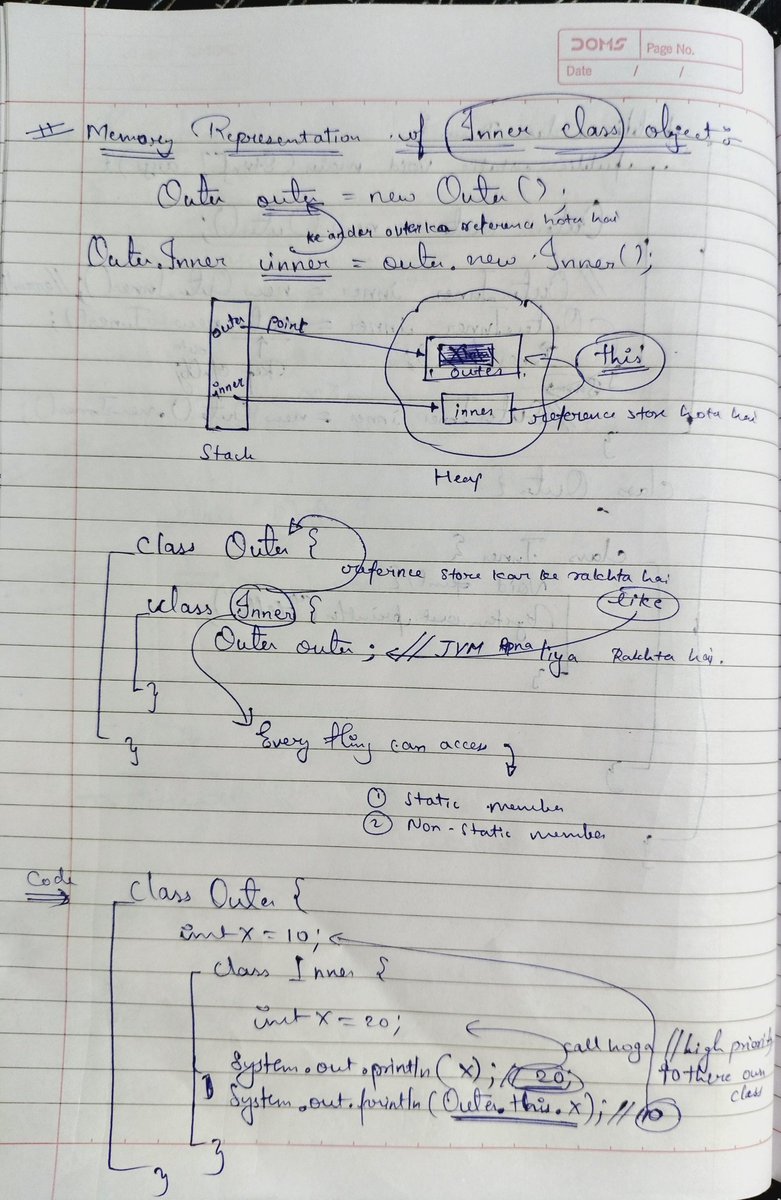 DOMS Page No.
Date / /
# Memory Representation of Inner class object:
Outer outer = new Outer();
ke ander outer ka reference hota hai
Outer.Inner inner = outer.new Inner();
outer point
outer this
inner inner reference store hota hai
Stack
Heap
class Outer {
refernce store kar ke rakhta hai
class Inner { like
Outer outer; // JVM Apna liya Rakhta hai.
}
}
Every thing can access
① Static member
② Non-static member
Code
class Outer {
int x = 10;
class Inner {
int x = 20;
call hoga // high priority
System.out.println(x); // 20; to there own
class
System.out.println(Outer.this.x); // 10
}
}